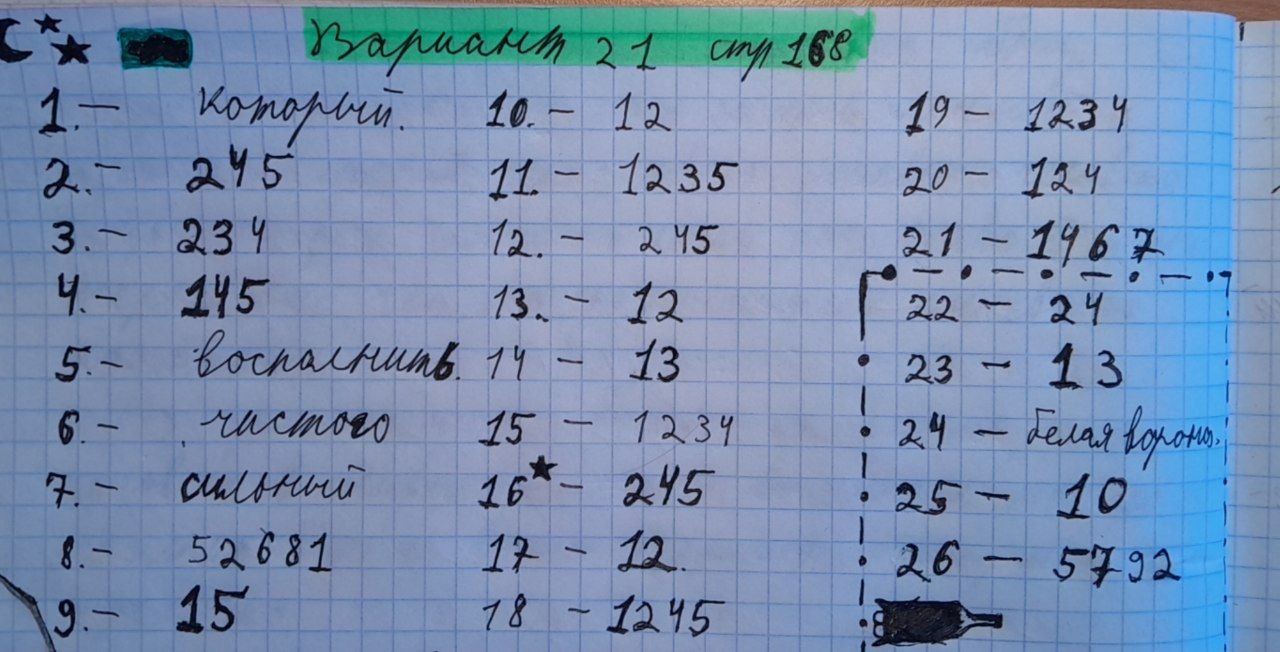 Вариант 21 стр 168
1.– который.
2.– 245
3.– 234
4.– 145
5.– восполнить.
6.– чистого
7.– сильный
8.– 52681
9.– 15
10.– 12
11.– 1235
12.– 245
13.– 12
14 – 13
15 – 1234
16★– 245
17 – 12.
18 – 1245
19 – 1234
20 – 124
21 – 1467
22 – 24
23 – 13
24 – белая ворона.
25 – 10
26 – 5792